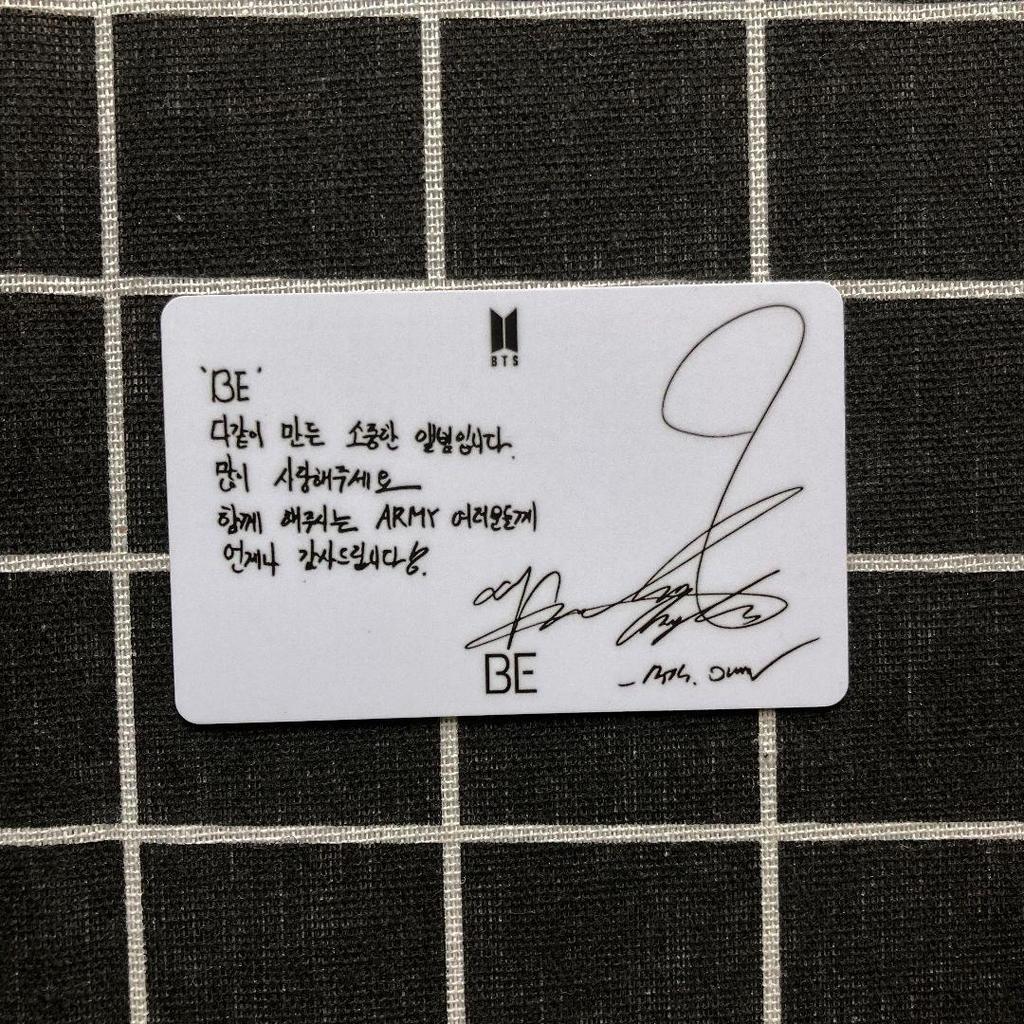 BTS
'BE'
다같이 만든 소중한 앨범입니다.
많이 사랑해주세요
함께 해주시는 ARMY 여러분들께
언제나 감사드립니다!
BE